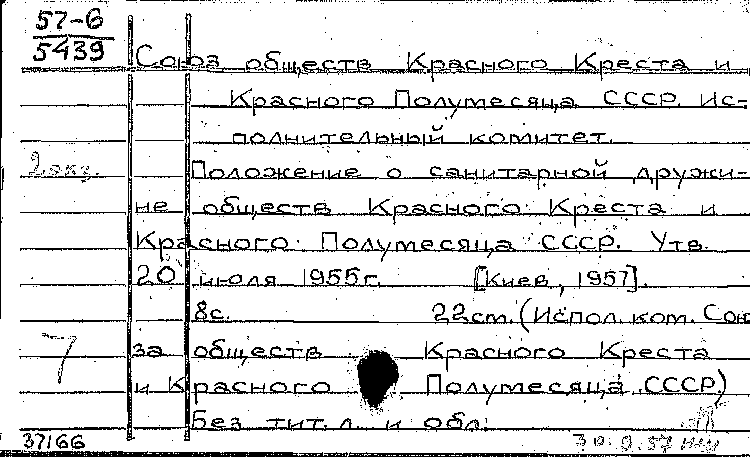 57-6
5439
Союз обществ Красного Креста и
Красного Полумесяца СССР. Ис-
полнительный комитет.
2 экз.
Положение о санитарной дружи-
не обществ Красного Креста и
Красного Полумесяца СССР. Утв.
20 июля 1955г. [Киев, 1957].
8с. 22см. (Испол. ком. Сою
7
за обществ Красного Креста
и Красного Полумесяца СССР)
Без тит. л. и обл.
37166